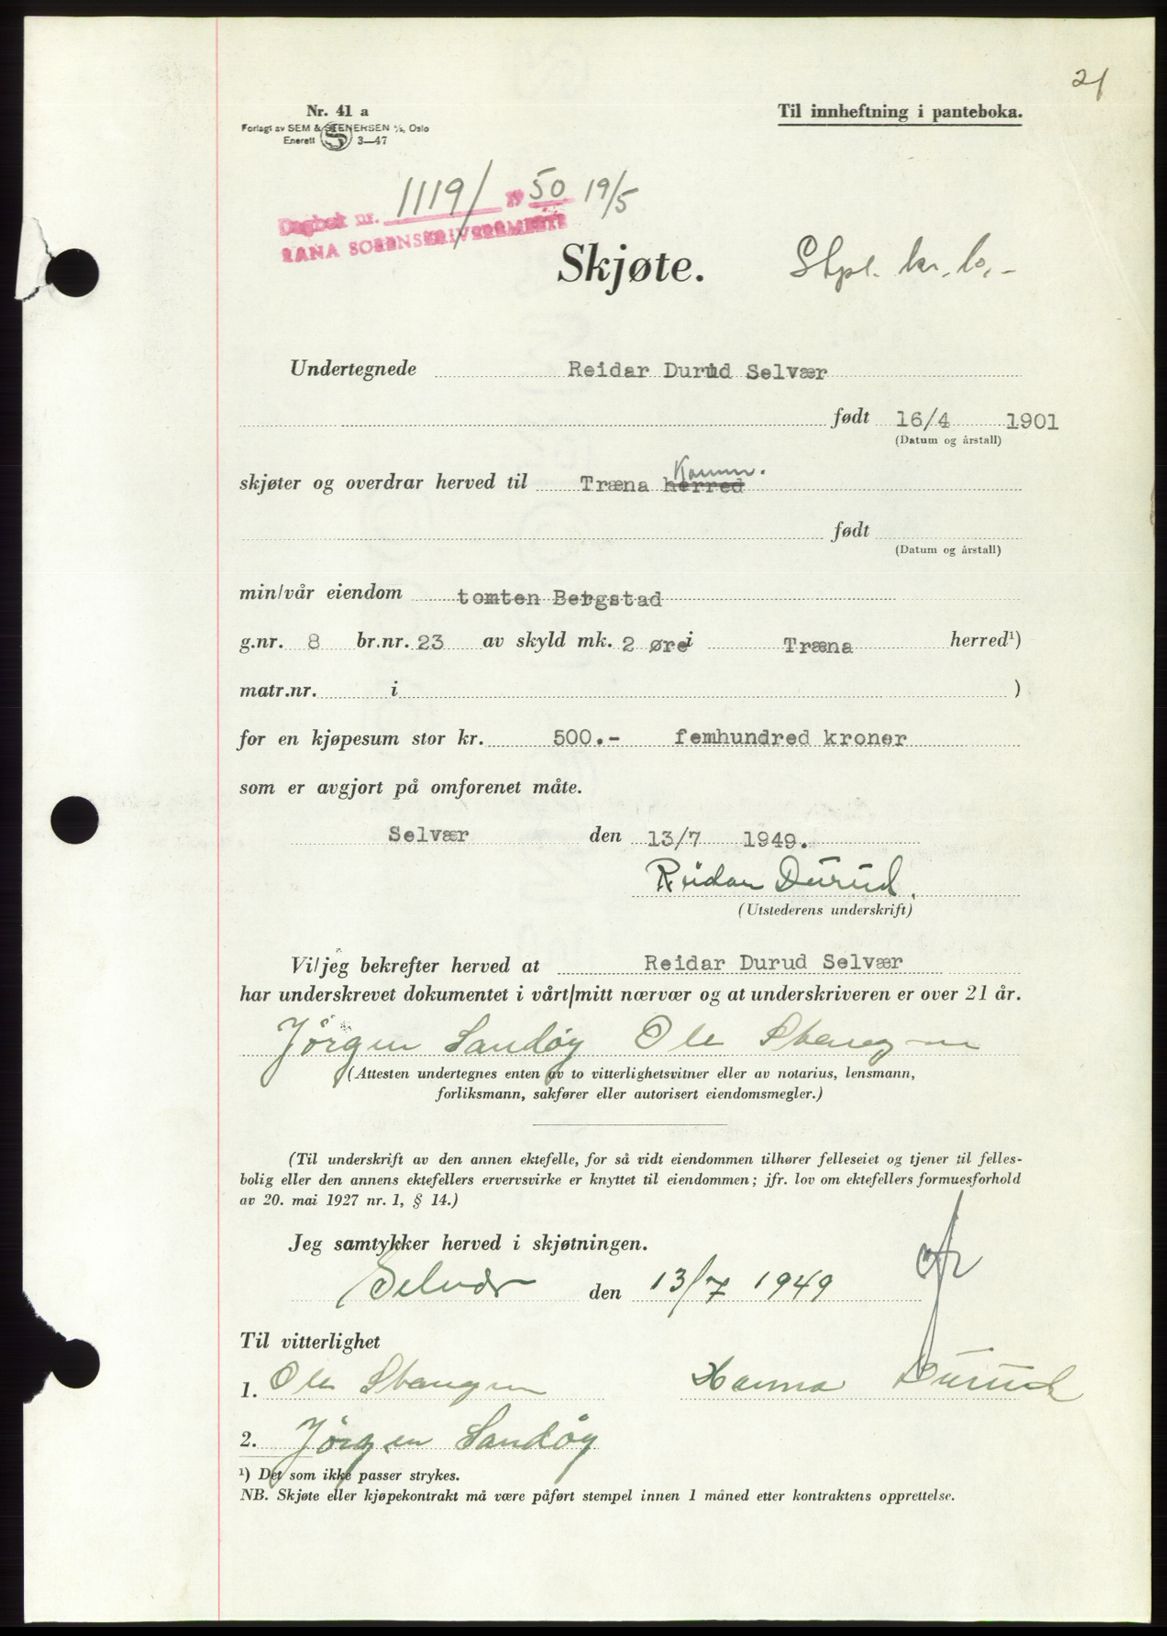 21
Nr. 41 a
Til innheftning i panteboka.
Forlagt av SEM & STENERSEN A/S, Oslo
Enerett S 3—47
Dagbok nr. 1119/ 19 50 19/5
RANA SORENSKRIVEREMBETE
Skjøte. Stpl. kr. 10,-
Undertegnede Reidar Durud Selvær
født 16/4 1901
(Datum og årstall)
Komm.
skjøter og overdrar herved til Træna herred
født
(Datum og årstall)
min/vår eiendom tomten Bergstad
g.nr. 8 br.nr. 23 av skyld mk. 2 øre i Træna herred¹)
matr.nr. i )
for en kjøpesum stor kr. 500.- femhundred kroner
som er avgjort på omforenet måte.
Selvær den 13/7 1949.
Reidar Durud.
(Utstederens underskrift)
Vi/jeg bekrefter herved at Reidar Durud Selvær
har underskrevet dokumentet i vårt/mitt nærvær og at underskriveren er over 21 år.
Jörgen Sandöy Ole
(Attesten undertegnes enten av to vitterlighetsvitner eller av notarius, lensmann,
forliksmann, sakfører eller autorisert eiendomsmegler.)
(Til underskrift av den annen ektefelle, for så vidt eiendommen tilhører felleseiet og tjener til felles-
bolig eller den annens ektefellers ervervsvirke er knyttet til eiendommen; jfr. lov om ektefellers formuesforhold
av 20. mai 1927 nr. 1, § 14.)
Jeg samtykker herved i skjøtningen.
Selvær den 13/7 1949
Til vitterlighet
1. Ole Hanna Durud
2. Jörgen Sandöy
¹) Det som ikke passer strykes.
NB. Skjøte eller kjøpekontrakt må være påført stempel innen 1 måned etter kontraktens opprettelse.